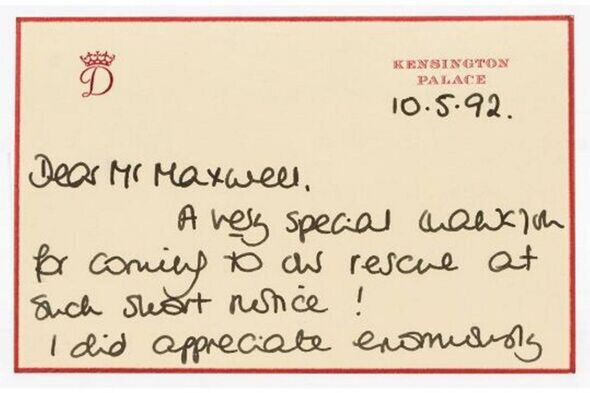 D
KENSINGTON
PALACE
10.5.92.
Dear Mr Maxwell.
A very special thankyou
for coming to our rescue at
such short notice !
I did appreciate enormously